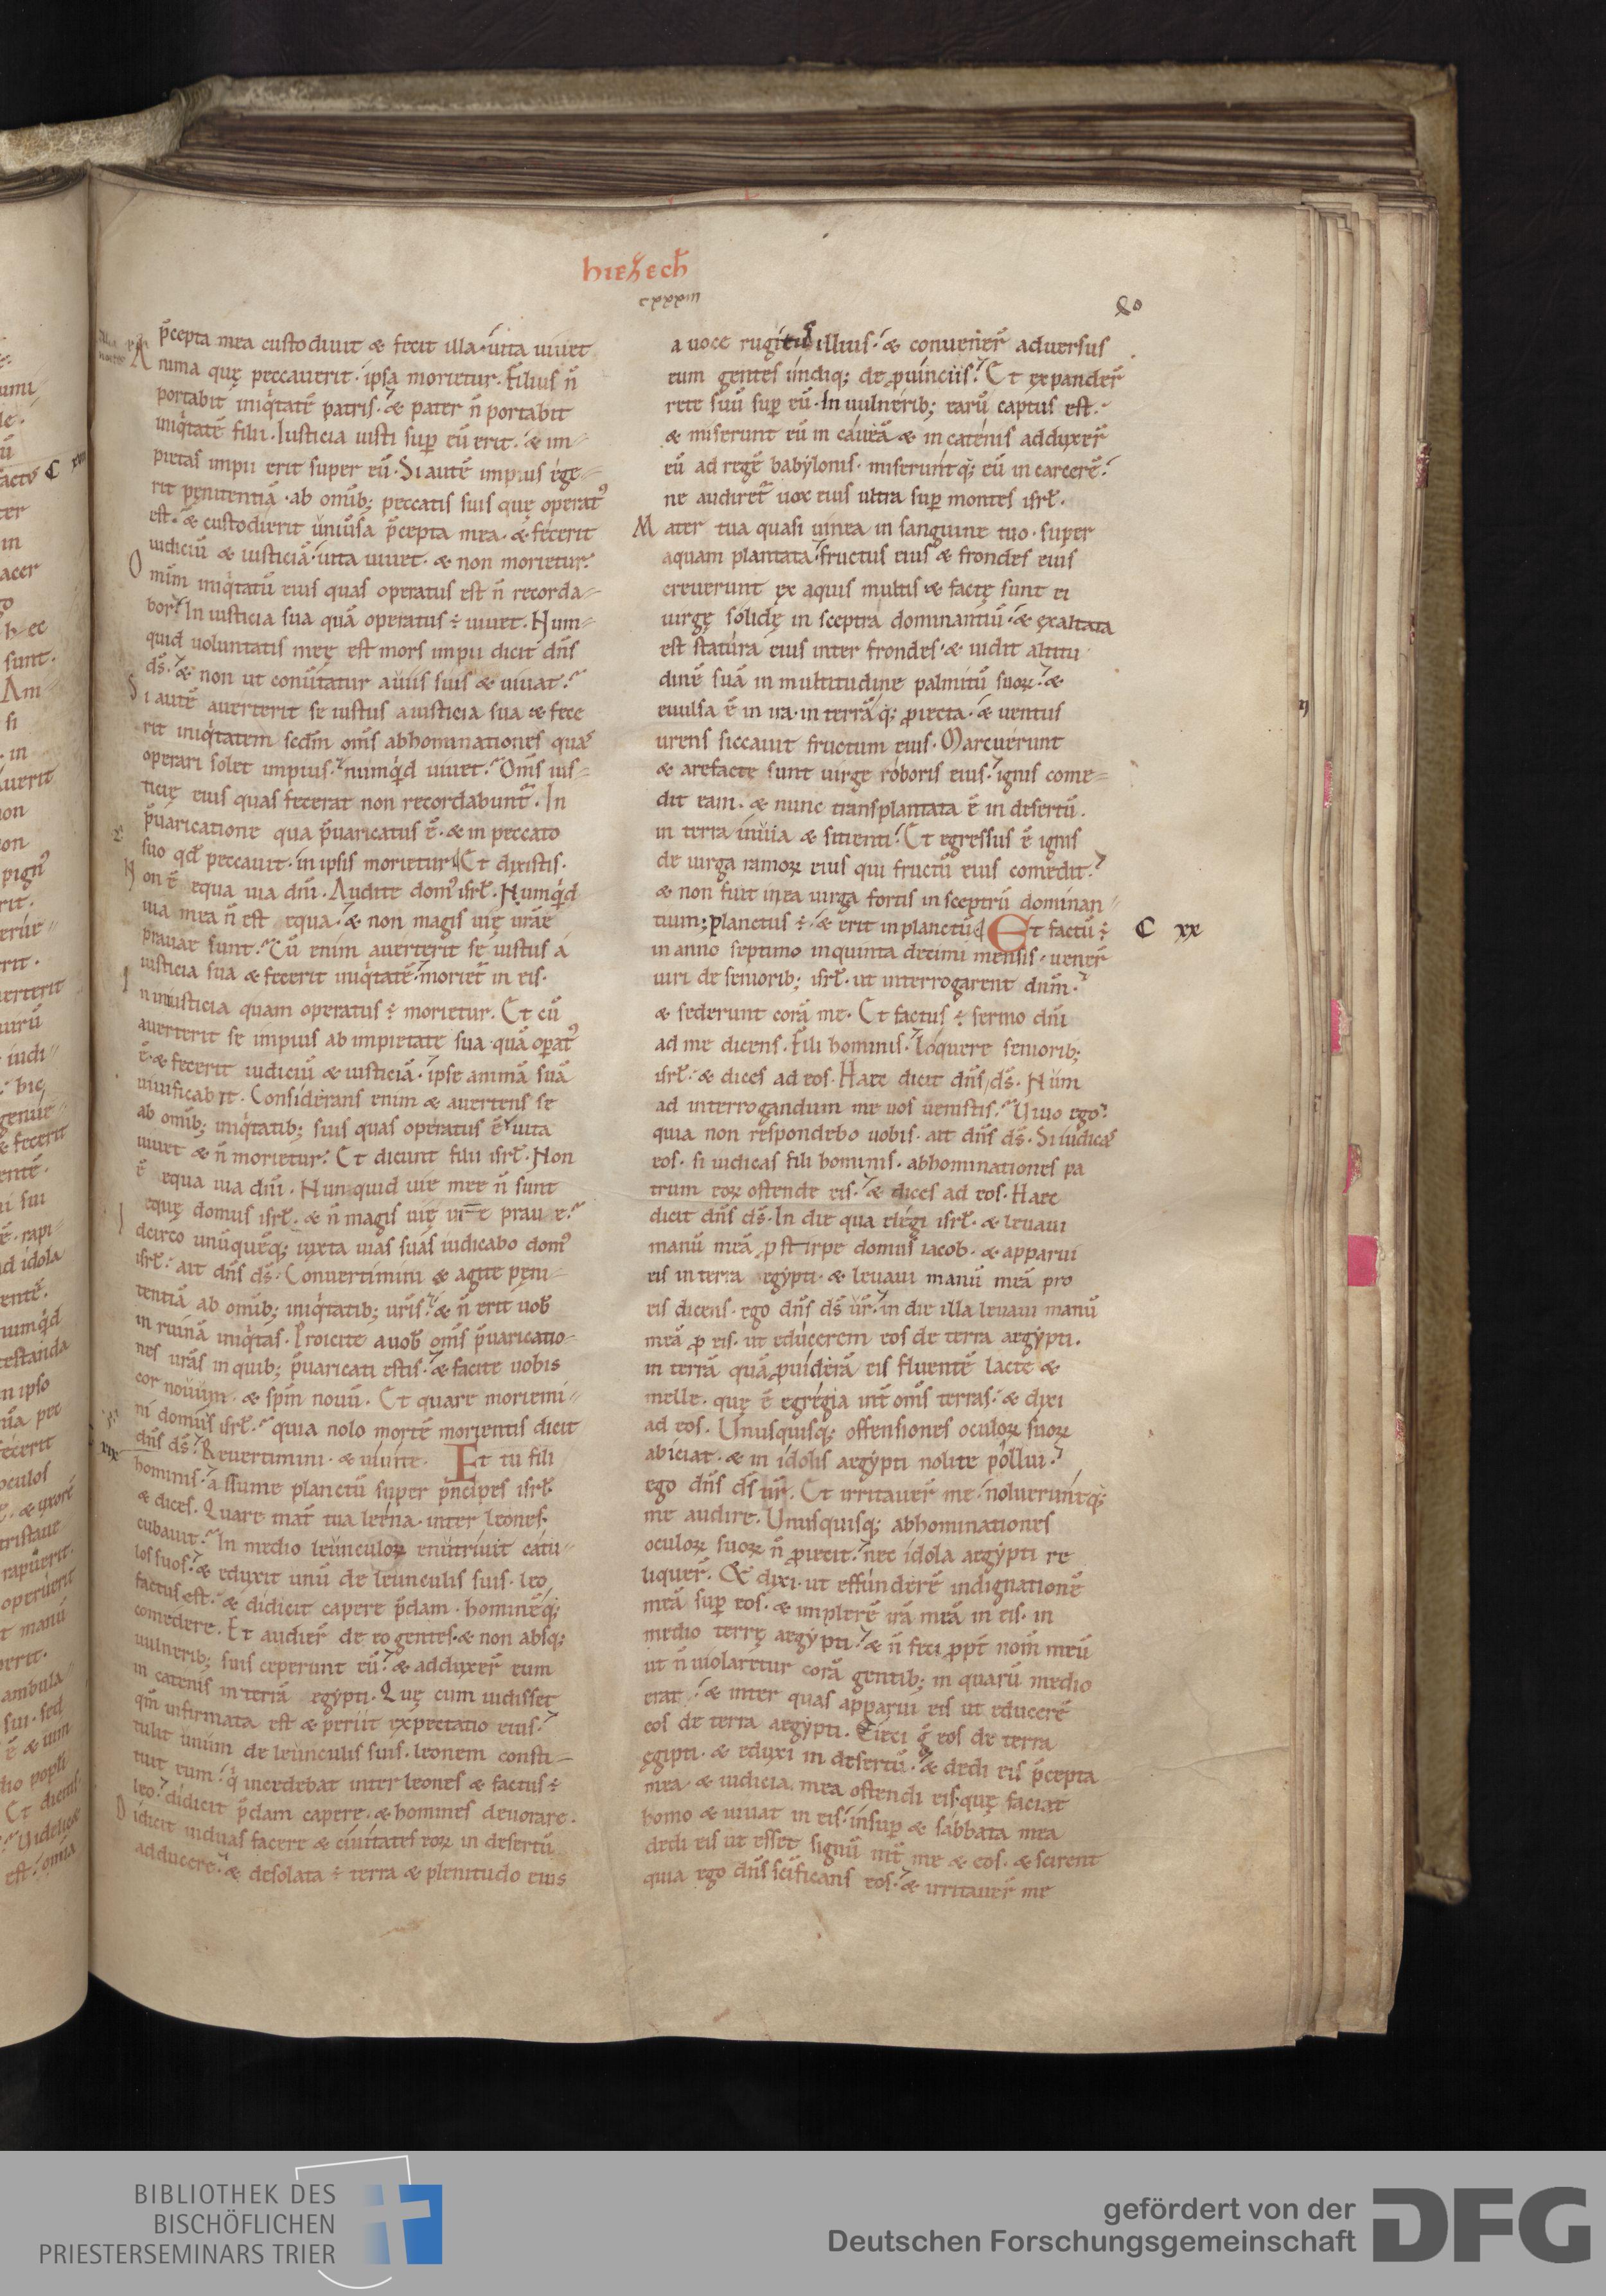 hiezech̄
cxxxiii
80
p̄cepta mea custodiuit & fecit illa. uita uiuet
Anima quę peccauerit. ipsa morietur. Filius n̄
portabit iniq̇tatē patris. & pater n̄ portabit
iniq̇tatē filii. Iusticia iusti sup̱ eū erit. & im-
pietas impii erit super eū. Si autē impius ege-
rit pęnitentiā. ab omib; peccatis suis quę operat᷒
est. & custodierit uniūsa p̄cepta mea. & fecerit
iudiciū & iusticiā. uita uiuet. & non morietur.
Omīm iniq̇tatū eius quas operatus est n̄ recorda-
bor. In iusticia sua quā operatus ÷ uiuet. Num-
quid uoluntatis męę est mors impii dicit dn̄s
ds̄. & non ut conūtatur a uiis suis & uiuat.
Si autē auerterit se iustus a iusticia sua & fece
rit iniq̇tatem scdm̄ om̄s abhominationes quas
operari solet impius. numq̇d uiuet. Om̄s ius-
ticię eius quas fecerat non recordabunt̄. In
p̄uaricatione qua p̄uaricatus ē. & in peccato
suo qd̄ peccauit. in ipsis morietur. Et dixistis.
Non ē equa uia dn̄i. Audite dom᷒ isrł. Numq̇d
uia mea n̄ est equa. & non magis uię urāe
prauae sunt. Cū enim auerterit se iustus a
iusticia sua & fecerit iniq̇tatē. moriet̄ in eis.
In iniusticia quam operatus ÷ morietur. Et cū
auerterit se impius ab impietate sua quā op̱at᷒
ē. & fecerit iudiciū & iusticiā. ipse animā suā
uiuificabit. Considerans enim & auertens se
ab omib; iniq̇tatib; suis quas operatus ē. uita
uiuet & n̄ morietur. Et dicunt filii isrł. Non
ē equa uia dn̄i. Nunquid uię męę n̄ sunt
equę domus isrł. & n̄ magis uię
Idcirco unūquēq; iuxta uias suas iudicabo dom᷒
isrł. ait dn̄s ds̄. Conuertimini & agite pęni-
tentiā ab omib; iniq̇tatib; ur̄is. & n̄ erit uob̄
in ruinā iniq̇tas. Proicite a uob̄ om̄s p̄uaricatio-
nes ur̄as in quib; p̄uaricati estis. & facite uobis
cor nouum. & spm̄ nouū. Et quare moriemi-
ni domus isrł. quia nolo mortē morientis dicit
dn̄s ds̄. Reuertimini. & uiuite. Et tu fili
xix
hominis. assume planctū super p̄ncipes isrł.
& dices. Quare mat̄ tua leena inter leones
cubauit. In medio leunculoꝝ enutriuit catu-
los suos. & eduxit unū de leunculis suis. leo
factus est. & didicit capere p̄dam. hominēq;
comedere. Et audier̄ de eo gentes. & non absq;
uulnerib; suis ceperunt eū. & adduxer̄ eum
in catenis in terrā egypti. Quę cum uidisset
qm̄ infirmata est & periit expectatio eius.
tulit unum de leunculis suis. leonem consti-
tuit eum. q̇ incedebat inter leones & factus ÷
leo. didicit p̄dam capere. & homines deuorare.
Didicit uiduas facere & ciuitates eoꝝ in desertū
adducere. & desolata ÷ terra & plenitudo eius
a uoce rugitus illius. & conuener̄ aduersus
eum gentes undiq; de ꝓuinciis. Et expander̄
rete suū sup̱ eū. In uulnerib; earū captus est.
& miserunt eū in caueā & in catenis adduxer̄
eū ad regē babylonis. miseruntq; eū in carcerē.
ne audiret̄ uox eius ultra sup̱ montes isrł.
Mater tua quasi uinea in sanguine tuo. super
aquam plantata. fructus eius & frondes eius
creuerunt ex aquis multis & factę sunt ei
uirgę solidę in sceptra dominantiū. & exaltata
est statura eius inter frondes. & uidit altitu
dinē suā in multitudine palmitū suoꝝ. &
euulsa ē in ira. in terrāq; ꝓiecta. & uentus
urens siccauit fructum eius. Marcuerunt
& arefactę sunt uirge roboris eius. ignis come-
dit eam. & nunc transplantata ē in desertū.
in terra inuia & sitienti. Et egressus ē ignis
de uirga ramoꝝ eius qui fructū eius comedit.
& non fuit in ea uirga fortis in sceptrū dominan-
tium; planctus ÷. & erit in planctū. Et factū ÷
C xx
in anno septimo in quinta decimi mensis. uener̄
uiri de seniorib; isrł. ut interrogarent dnm̄.
& sederunt corā me. Et factus ÷ sermo dn̄i
ad me dicens. Fili hominis. loquere seniorib;
isrł. & dices ad eos. Haec dicit dn̄s ds̄. Num
ad interrogandum me uos uenistis. Uiuo ego.
quia non respondebo uobis. ait dn̄s ds̄. Si iudicas
eos. si iudicas fili hominis. abhominationes pa
trum eoꝝ ostende eis. & dices ad eos. Haec
dicit dn̄s ds̄. In die qua elegi isrł. & leuaui
manū meā ꝓ stirpe domus iacob. & apparui
eis in terra egypti. & leuaui manū meā pro
eis dicens. ego dn̄s ds̄ ur̄. in die illa leuaui manū
meā ꝓ eis. ut educerem eos de terra aegypti.
in terrā quā ꝓuiderā eis fluentē lacte &
melle. quę ē egregia int̄ om̄s terras. & dixi
ad eos. Unusquisq; offensiones oculoꝝ suoꝝ
abiciat. & in idolis aegypti nolite pollui.
ego dn̄s ds̄ ur̄. Et irritauer̄ me. nolueruntq;
me audire. Unusquisq; abhominationes
oculoꝝ suoꝝ n̄ ꝓiecit. nec idola aegypti re
liquer̄. Et dixi. ut effunderē indignationē
meā sup̱ eos. & implerē irā meā in eis. in
medio terrę aegypti. & n̄ feci ꝓpt̄ nom̄ meū
ut n̄ uiolaretur corā gentib; in quarū medio
erat. & inter quas apparui eis ut educerē
eos de terra aegypti. Eieci g̊ eos de terra
ęgipti. & eduxi in desertū. & dedi eis p̄cepta
mea. & iudicia mea ostendi eis. quę faciat
homo & uiuat in eis. insup̱ & sabbata mea
dedi eis ut esset signū int̄ me & eos. & scirent
quia ego dn̄s sc̄ificans eos. & irritauer̄ me
BIBLIOTHEK DES
BISCHÖFLICHEN
PRIESTERSEMINARS TRIER
gefördert von der
Deutschen Forschungsgemeinschaft
DFG